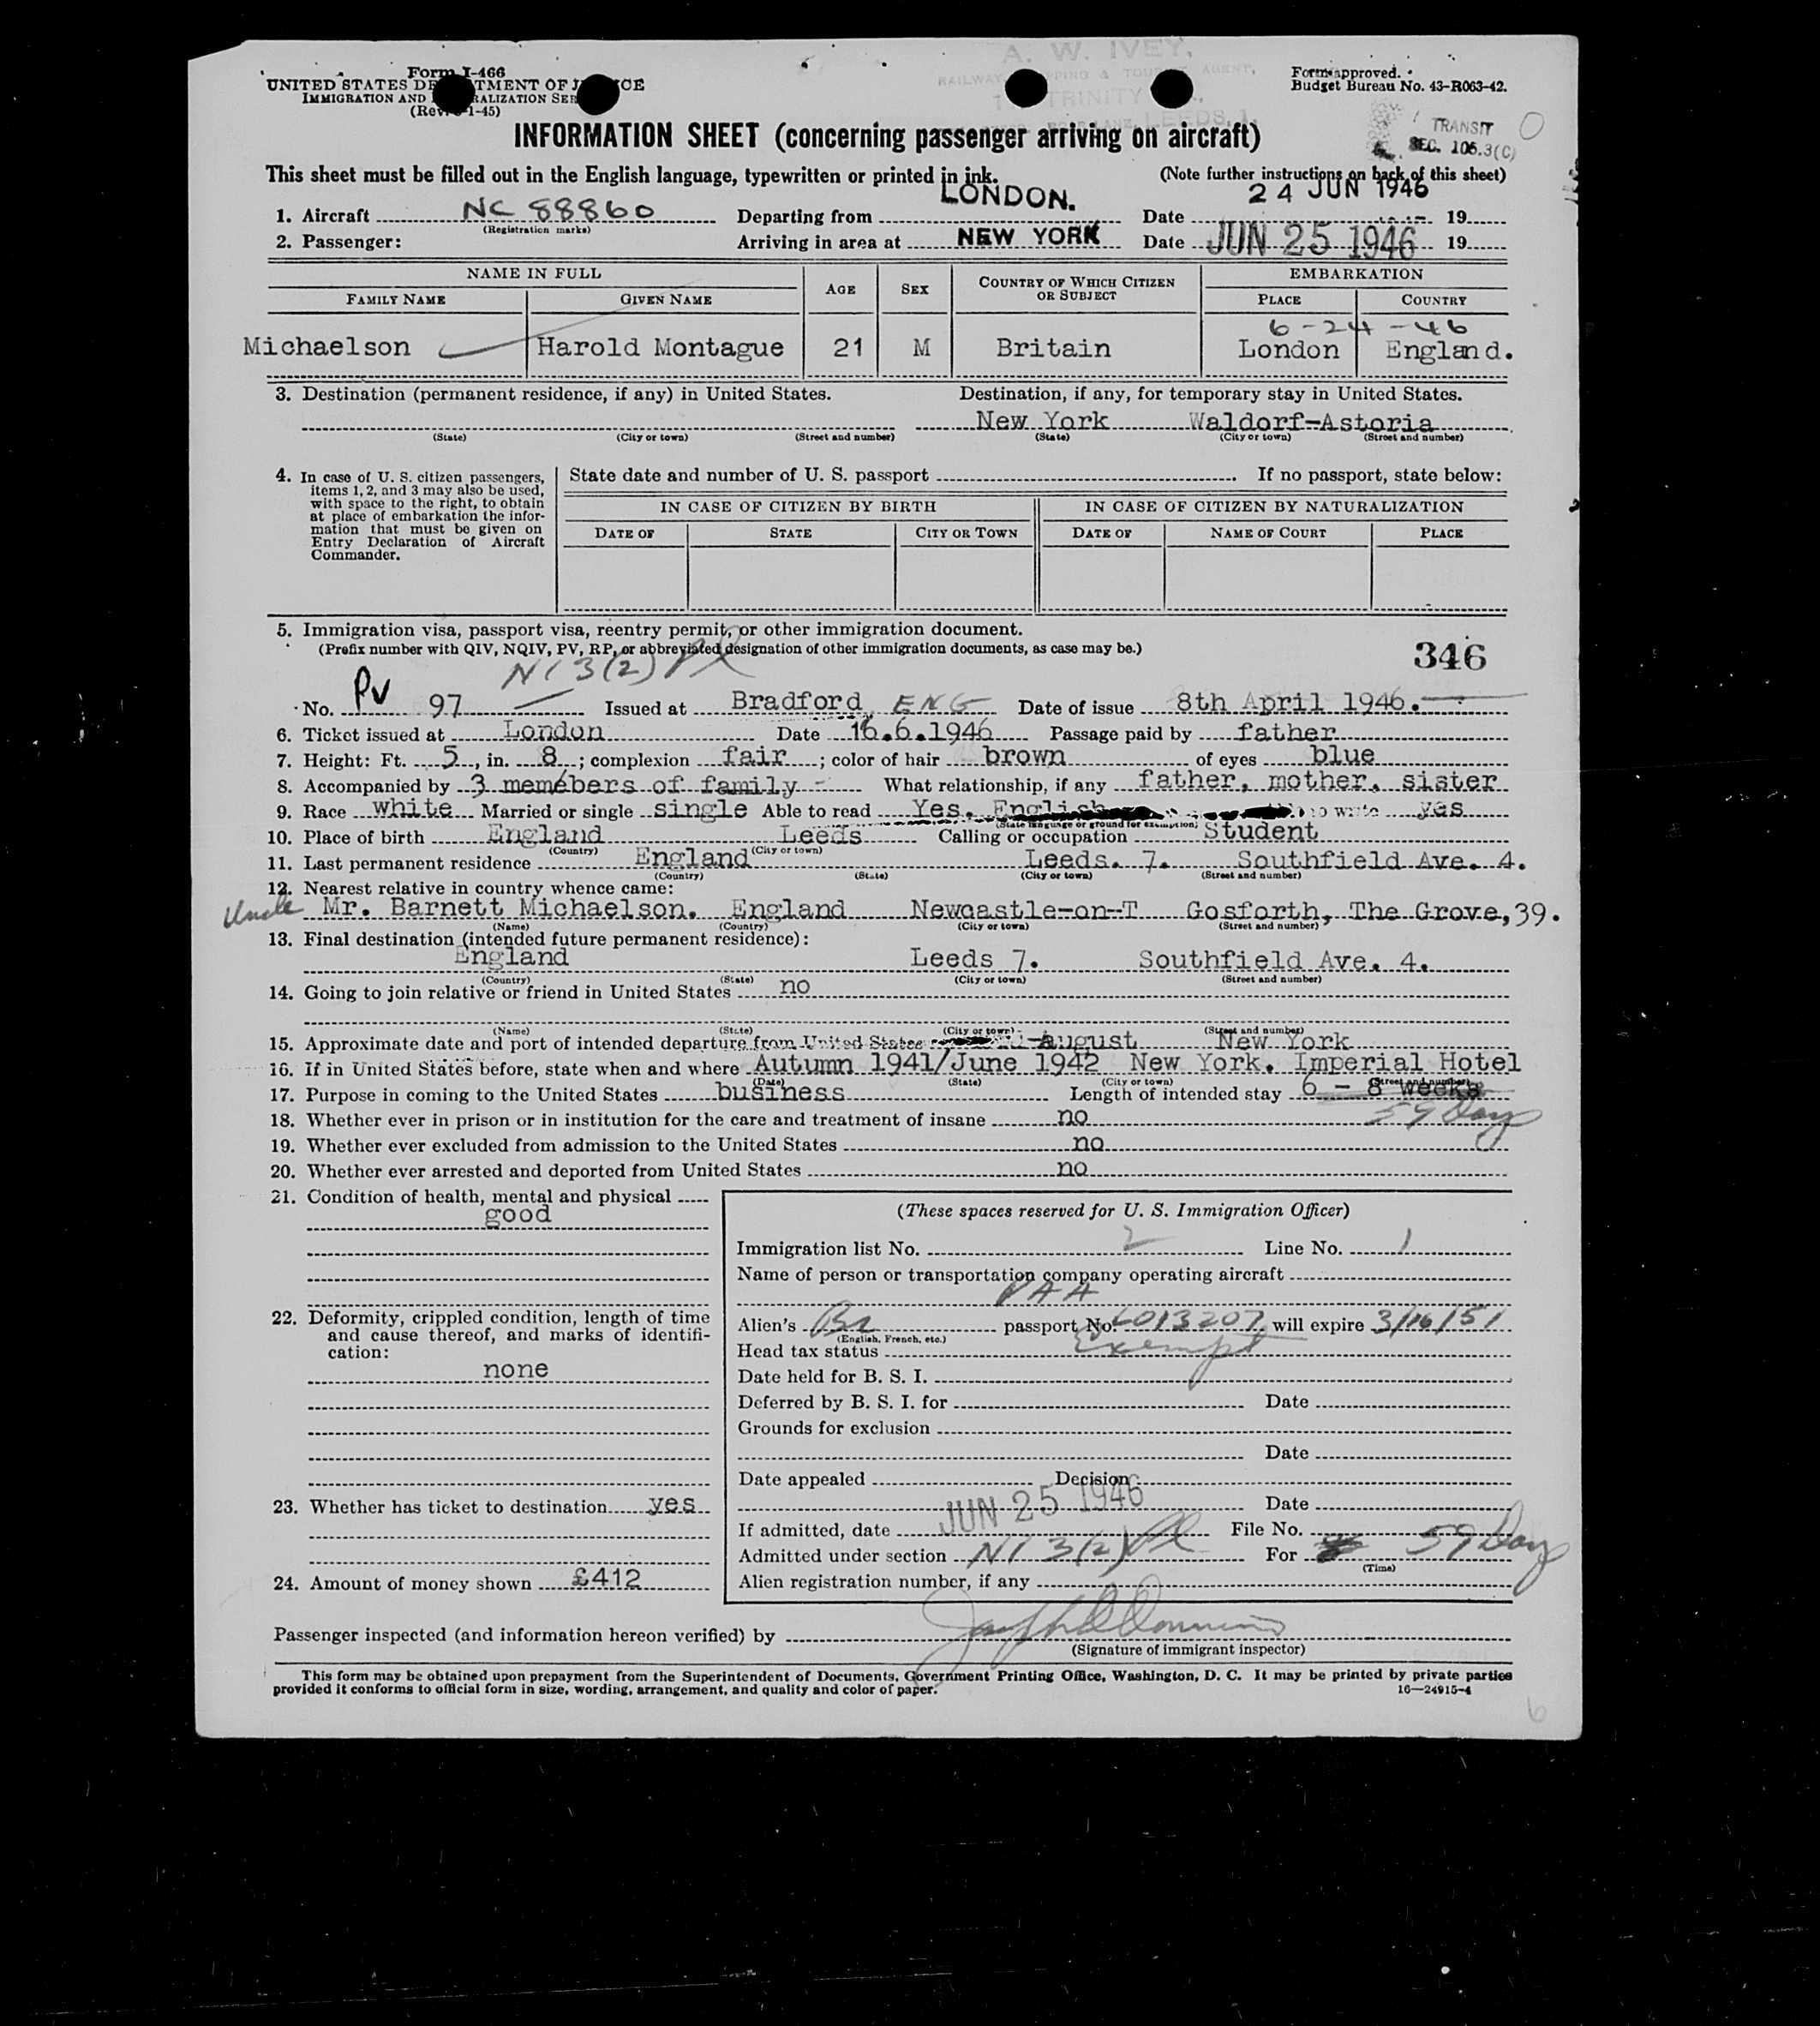 A. W. IVEY,
Form I-466
UNITED STATES DE TMENT OF J CE
IMMIGRATION AND ALIZATION SER
(Rev. 1-45)
Form approved.
Budget Bureau No. 43-R063-42.
TRANSIT
SEC. 105.3(C)
INFORMATION SHEET (concerning passenger arriving on aircraft)
This sheet must be filled out in the English language, typewritten or printed in ink. (Note further instructions on back of this sheet)
1. Aircraft NC 88860 Departing from LONDON. Date 24 JUN 1946 19
(Registration marks)
2. Passenger: Arriving in area at NEW YORK Date JUN 25 1946 19
NAME IN FULL AGE SEX COUNTRY OF WHICH CITIZEN OR SUBJECT EMBARKATION
FAMILY NAME GIVEN NAME PLACE COUNTRY
6-24-46
Michaelson Harold Montague 21 M Britain London England.
3. Destination (permanent residence, if any) in United States. Destination, if any, for temporary stay in United States.
New York Waldorf-Astoria
(State) (City or town) (Street and number) (State) (City or town) (Street and number)
4. In case of U. S. citizen passengers, items 1, 2, and 3 may also be used, with space to the right, to obtain at place of embarkation the information that must be given on Entry Declaration of Aircraft Commander.
State date and number of U. S. passport . If no passport, state below:
IN CASE OF CITIZEN BY BIRTH IN CASE OF CITIZEN BY NATURALIZATION
DATE OF STATE CITY OR TOWN DATE OF NAME OF COURT PLACE
5. Immigration visa, passport visa, reentry permit, or other immigration document.
(Prefix number with QIV, NQIV, PV, RP, or abbreviated designation of other immigration documents, as case may be.) 346
NI 3(2) Pl
No. PV 97 Issued at Bradford ENG Date of issue 8th April 1946.
6. Ticket issued at London Date 16.6.1946 Passage paid by father
7. Height: Ft. 5, in. 8; complexion fair; color of hair brown of eyes blue
8. Accompanied by 3 memebers of family What relationship, if any father, mother, sister
9. Race white Married or single single Able to read Yes, English to write yes
(State language or ground for exemption)
10. Place of birth England Leeds Calling or occupation Student
(Country) (City or town)
11. Last permanent residence England Leeds. 7. Southfield Ave. 4.
(Country) (State) (City or town) (Street and number)
12. Nearest relative in country whence came:
Uncle Mr. Barnett Michaelson. England Newcastle-on-T Gosforth, The Grove, 39.
(Name) (Country) (City or town) (Street and number)
13. Final destination (intended future permanent residence):
England Leeds 7. Southfield Ave. 4.
(Country) (State) (City or town) (Street and number)
14. Going to join relative or friend in United States no
(Name) (State) (City or town) (Street and number)
15. Approximate date and port of intended departure from United States august New York
16. If in United States before, state when and where Autumn 1941/June 1942 New York. Imperial Hotel
(Date) (State) (City or town) (Street and number)
17. Purpose in coming to the United States business Length of intended stay 6 - 8 weeks
59 Day
18. Whether ever in prison or in institution for the care and treatment of insane no
19. Whether ever excluded from admission to the United States no
20. Whether ever arrested and deported from United States no
21. Condition of health, mental and physical
good
22. Deformity, crippled condition, length of time and cause thereof, and marks of identification:
none
23. Whether has ticket to destination yes
24. Amount of money shown £412
(These spaces reserved for U. S. Immigration Officer)
Immigration list No. 2 Line No. 1
Name of person or transportation company operating aircraft
PAA
Alien's Br passport No. L013207 will expire 3/16/51
(English, French, etc.)
Head tax status Exempt
Date held for B. S. I.
Deferred by B. S. I. for Date
Grounds for exclusion
Date
Date appealed Decision
Date
If admitted, date JUN 25 1946 File No.
Admitted under section NI 3(2) Pl For 59 Day
(Time)
Alien registration number, if any
Passenger inspected (and information hereon verified) by
(Signature of immigrant inspector)
This form may be obtained upon prepayment from the Superintendent of Documents, Government Printing Office, Washington, D. C. It may be printed by private parties
provided it conforms to official form in size, wording, arrangement, and quality and color of paper. 16—24915-4
6